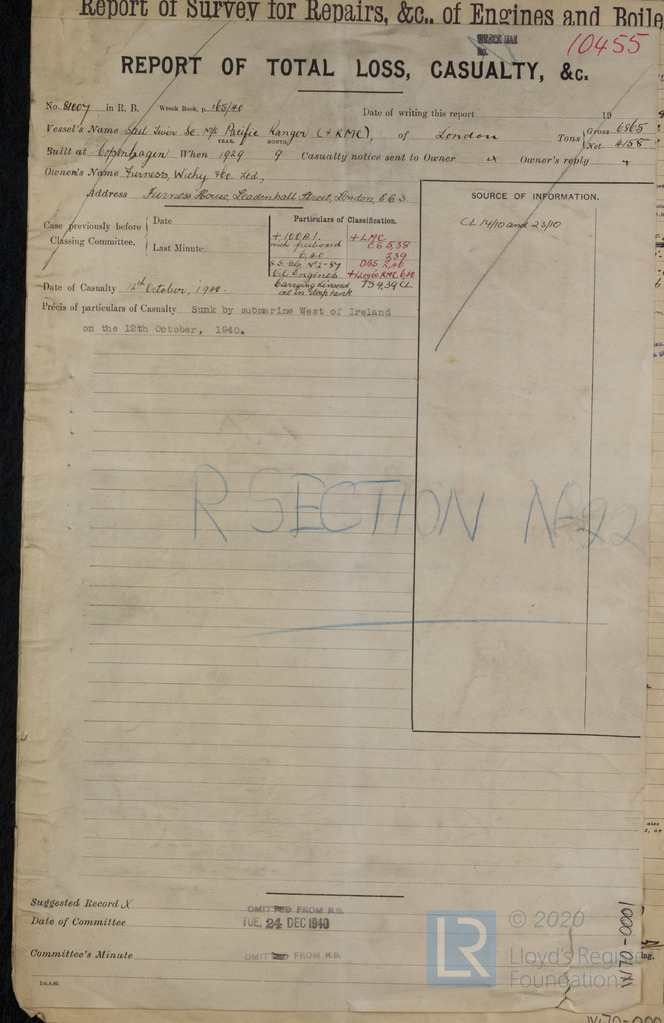 Report of Survey for Repairs, &c., of Engines and Boile
WRECK
No.
10455
REPORT OF TOTAL LOSS, CASUALTY, &c.
No. 81007 in R. B. Wreck Book, p. 165/40 Date of writing this report 19
Vessel's Name Steel Twin Sc. M/S Pacific Ranger (+RMC), of London Tons Gross 6865
YEAR. MONTH. Net 4158
Built at Copenhagen When 1929 9 Casualty notice sent to Owner x Owner's reply
Owner's Name Furness, Withy & Co. Ltd.,
Address Furness House, Leadenhall Street, London, E.C.3.
SOURCE OF INFORMATION.
CL 14/10 and 23/10
Case previously before Classing Committee.
Date
Last Minute
Particulars of Classification.
+100A.1. +LMC
with freeboard CS 5,38
6,40 2,39
S.S. No 2-37
Oil Engines +Lloyd's RMC 6,40
Carrying Linseed TS 4,39 CL
oil in deep tank
Date of Casualty 12th October, 1940.
Précis of particulars of Casualty Sunk by submarine West of Ireland
on the 12th October, 1940.
R SECTION No 22
Suggested Record X
OMITTED FROM R.B.
Date of Committee TUE. 24 DEC 1940
Committee's Minute OMITTED FROM R.B.
1m,4,40.
LR © 2020
Lloyd's Register
Foundation
IX170-0001